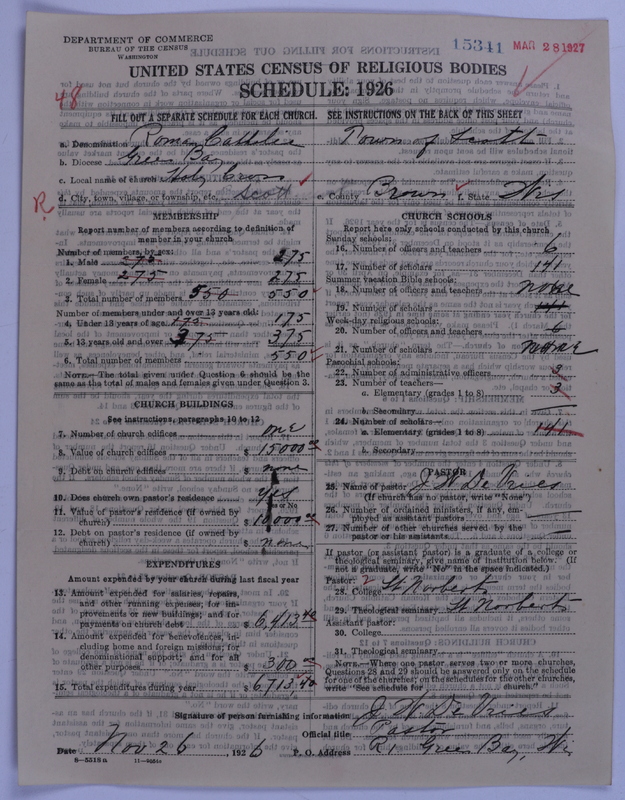 DEPARTMENT OF COMMERCE
BUREAU OF THE CENSUS
WASHINGTON
15341 MAR 28 1927
UNITED STATES CENSUS OF RELIGIOUS BODIES
SCHEDULE: 1926
48
FILL OUT A SEPARATE SCHEDULE FOR EACH CHURCH. SEE INSTRUCTIONS ON THE BACK OF THIS SHEET
a. Denomination Roman Catholic Town of Scott
b. Diocese Green Bay
c. Local name of church Holy Cross
d. City, town, village, or township, etc. Scott e. County Brown f. State Wis
R
MEMBERSHIP
Report number of members according to definition of
member in your church
Number of members, by sex:
1. Male 275 275
2. Female 275 275
3. Total number of members 550 550
Number of members under and over 13 years old:
4. Under 13 years of age 175 175
5. 13 years old and over 375 375
6. Total number of members 550
NOTE.—The total given under Question 6 should be the
same as the total of males and females given under Question 3.
CHURCH BUILDINGS
See instructions, paragraphs 10 to 12
7. Number of church edifices one
8. Value of church edifices $ 15000 00
9. Debt on church edifices $ none
10. Does church own pastor's residence Yes
Yes or No
11. Value of pastor's residence (if owned by
church) $ 10000
12. Debt on pastor's residence (if owned by
church) $ none
EXPENDITURES
Amount expended by your church during last fiscal year
13. Amount expended for salaries, repairs,
and other running expenses; for im-
provements or new buildings; and for
payments on church debt $ 6,413.40
14. Amount expended for benevolences, in-
cluding home and foreign missions; for
denominational support; and for all
other purposes $ 300 00
15. Total expenditures during year $ 6,713.40
CHURCH SCHOOLS
Report here only schools conducted by this church
Sunday schools:
16. Number of officers and teachers 6
17. Number of scholars 141
Summer vacation Bible schools:
18. Number of officers and teachers none
19. Number of scholars
Week-day religious schools:
20. Number of officers and teachers 6
21. Number of scholars none
Parochial schools:
22. Number of administrative officers 3
23. Number of teachers—
a. Elementary (grades 1 to 8) 3
b. Secondary
24. Number of scholars—
a. Elementary (grades 1 to 8) 141
b. Secondary
PASTOR
25. Name of pastor J W De Vries
(If church has no pastor, write "None")
26. Number of ordained ministers, if any, em-
ployed as assistant pastors —
27. Number of other churches served by the
pastor or his assistants —
If pastor (or assistant pastor) is a graduate of a college or
theological seminary, give name of institution below. (If
not a graduate, write "No" in the space indicated.)
Pastor:
28. College St Norberts
29. Theological seminary St Norberts
Assistant pastor:
30. College
31. Theological seminary
NOTE.—Where one pastor serves two or more churches,
Questions 28 and 29 should be answered only on the schedule
for one of the churches; on the schedules for the other churches,
write "See schedule for church."
Signature of person furnishing information J. W. De Vries
Official title Pastor
Date Nov 26 1926 P. O. Address R1, Green Bay, Wis
8—5518a